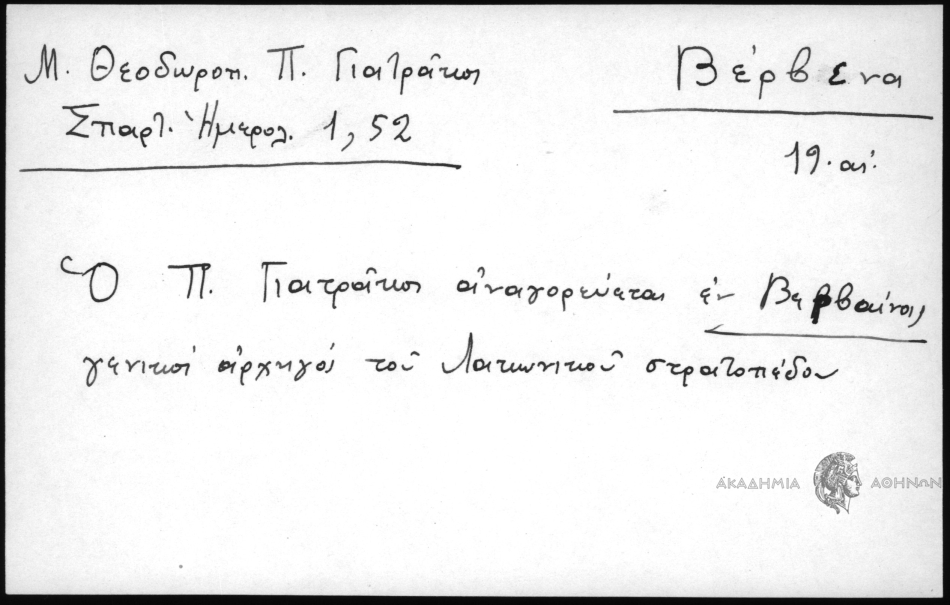 Μ. Θεοδωροπ. Π. Γιατρᾶκος
Σπαρτ. Ἡμερολ. 1, 52
Βέρβενα
19. αἰ.
Ὁ Π. Γιατρᾶκος ἀναγορεύεται ἐν Βερβαίνοις
γενικὸς ἀρχηγὸς τοῦ Λακωνικοῦ στρατοπέδου
ΑΚΑΔΗΜΙΑ ΑΘΗΝΩΝ